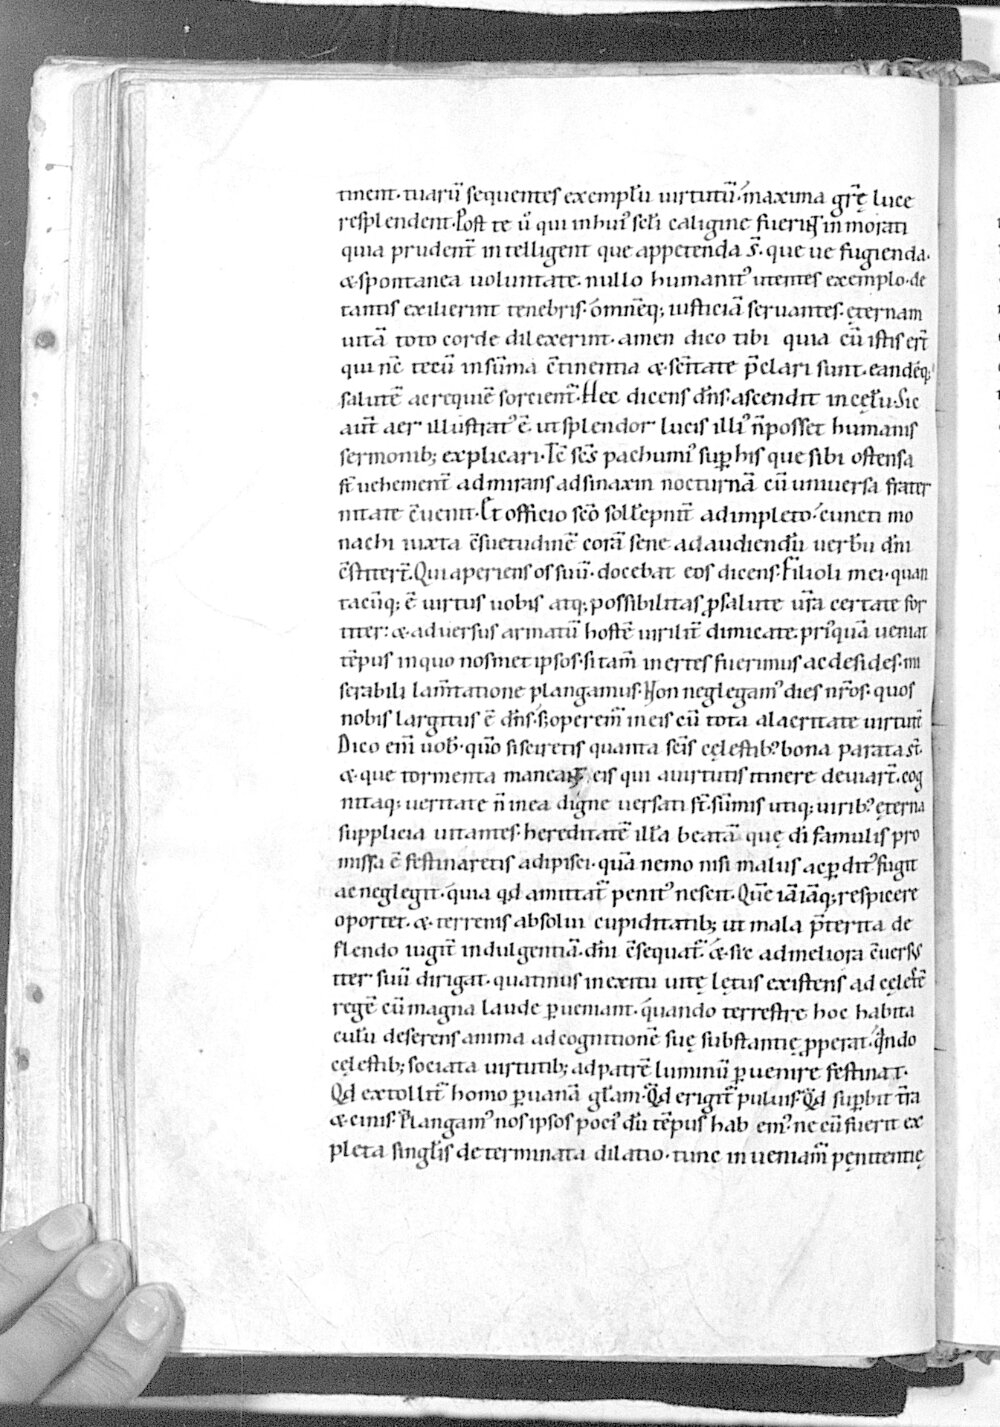 tinent. tuarū sequentes exemplū virtutū. maxima gr̄ę luce
resplendent. Post te ů qui in hui' sc̄li caligine fuerint inmorati
quia prudent̄ intelligent que appetenda s̄. que ue fugienda.
& spontanea uoluntate. nullo humanit' utentes exemplo. de
tantis exilierint tenebris. omnēq; iusticiā seruantes. ęternam
uitā toto corde dilexerint. amen dico tibi quia cū istis er̄t
qui nc̄ tecū in sūma c̄tinentia & sc̄itate p̄clari sunt. eandēq;
salutē ac requiē sorcient̄. Hec dicens dn̄s. ascendit in cęlū. Sic
aut̄ aer illustrat' ē. ut splendor lucis illi' n̄ posset humanis
sermonib; explicari. Tc̄ sc̄s pachumi' sup his que sibi ostensa
st̄ uehement̄ admirans ad sinaxin nocturnā cū uniuersa frater
nitate c̄uenit. Et officio sc̄o soll̄epnit̄ adimpleto. cuncti mo
nachi iuxta c̄suetudinē corā sene ad audiendū uerbū dn̄i
c̄stiter̄t. Qui aperiens os suū. docebat eos dicens. Filioli mei. quan
tacūq; ē uirtus uobis atq; possibilitas p salute ur̄a certate for
titer. & aduersus armatū hostē uirilit̄ dimicate. pri'quā ueniat
tēpus in quo nosmet ipsos. si tam̄ inertes fuerimus ac desides. mi
serabili lam̄tatione plangamus. Non neglegam' dies nr̄os. quos
nobis largitus ē dn̄s. s; operem̄ in eis cū tota alacritate uirtutē
Dico em̄ uob'. qūo si sciretis quanta sc̄is cęlestib' bona parata st̄.
& que tormenta maneant eis qui a uirtutis itinere deuiar̄t. cog
nitaq; ueritate n̄ in ea digne uersati st̄. sūmis utiq; uirib' ęterna
supplicia uitantes. hereditatē illā beatā que di famulis pro
missa ē festinaretis adipisci. quā nemo nisi malus ac pdit' fugit
ac neglegit. quia qd amittat̄ penit' nescit. Quē iā iāq; respicere
oportet. & terrenis absolui cupiditatib; ut mala p̄terita de
flendo iugit̄ indulgentiā dn̄i c̄sequat̄. & sic ad meliora c̄uersus
iter suū dirigat. quatinus in exitu uitę lętus existens ad cęlestē
regē cū magna laude pueniant. quando terrestre hoc habita
culū deserens anima ad cognitionē suę substantię pperat. qndo
cęlestib; sociata uirtutib; ad patrē luminū puenire festinat.
Qd extollit̄ homo p uanā glam. Qd erigit̄ puluis. Qd supbit tr̄a
& cinis. Plangam' nos ipsos poci' dū tēpus hab em'. ne cū fuerit ex
pleta singlis determinata dilatio. tunc inueniam̄ pęnitentię